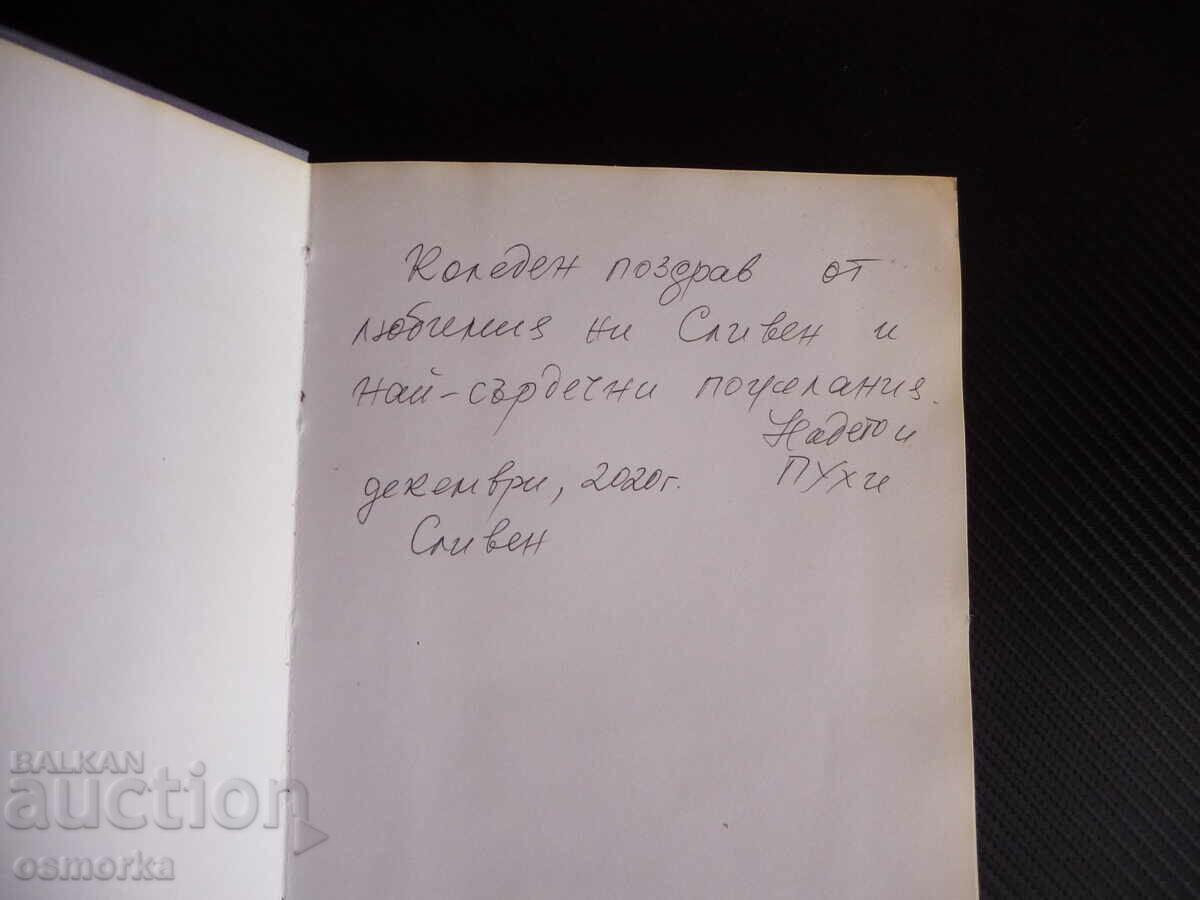 Коледен поздрав от
любимия ни Сливен и
най-сърдечни пожелания.
Надето и
ПУхи
декември, 2020г.
Сливен
BALKAN
auction
osmorka